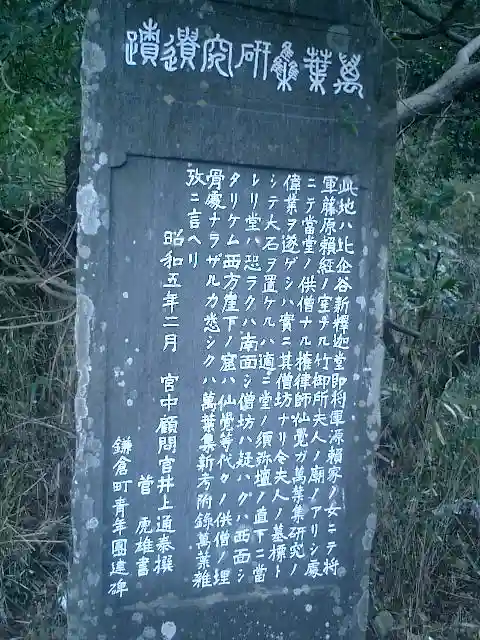 萬葉雧研究遺蹟
此地ハ比企谷新釋迦堂即將軍源頼家ノ女ニテ將
軍藤原頼經ノ室ナル竹御所夫人ノ廟ノアリシ處
ニテ當堂ノ供僧ナル權律師仙覺ガ萬葉集研究ノ
偉業ヲ遂ゲシハ實ニ其僧坊ナリ今夫人ノ墓標ト
シテ大石ヲ置ケルハ適ニ堂ノ須弥壇ノ直下ニ當
レリ堂ハ恐ラクハ南面シ僧坊ハ疑ハクハ西面シ
タリケム西方崖下ノ窟ハ仙覺等代々ノ供僧ノ埋
骨處ナラザルカ悉シクハ萬葉集新考附録萬葉雜
攷ニ言ヘリ
昭和五年二月 宮中顧問官井上通泰撰
菅虎雄書
鎌倉町青年團建碑